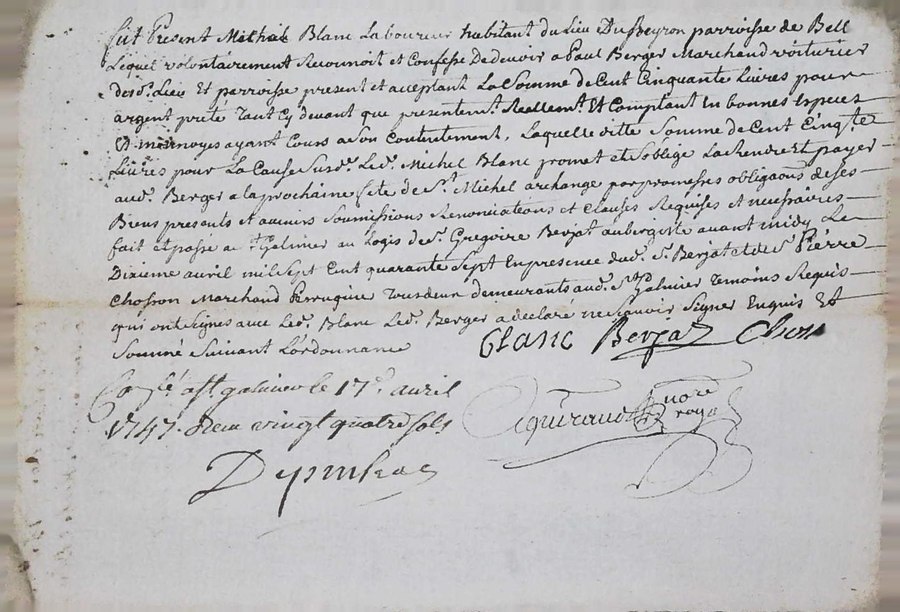 fut Present Michel Blanc Laboureur habitant du Lieu Du Beyron parroisse de Bell
Lequel volontairement Reconnoit et Confesse De devoir a Paul Berger Marchand voiturier
dud. Lieu Et parroisse present et acceptant La Somme de Cent Cinquante Livres pour
argent prété Tant Cy devant que presentemt. Reellemt. Et Comptant En bonnes Especes
Et monnoyes ayant Cours a Son Contentement, Laquelle ditte Somme de Cent Cinqte.
Livres pour La Cause Susd. Led. Michel Blanc promet et S'oblige La Rendre Et payer
aud. Berger a la prochaine fete de St. Michel archange par promesses obligaons de Ses
Biens presents et avenirs Soumissions Renonciations et Clauses Requises et necessaires
fait et passé a St. Galmier au Logis de Sr. Gregoire Berjat aubergiste avant midy Le
Dixieme avril mil Sept Cent quarante Sept En presence dud. Sr. Berjat et de Sr. Pierre
Chosson Marchand Perruquier Tous deux demeurants aud. St. Galmier Temoins Requis
qui ont Signes avec Led. Blanc Led. Berger a declaré ne Scavoir Signer Enquis Et
Sommé Suivant L'ordonnance
Blanc Berjat
Conlé a St galmier le 17e. avril
1747. Receu vingt quatre sols
nore
royal